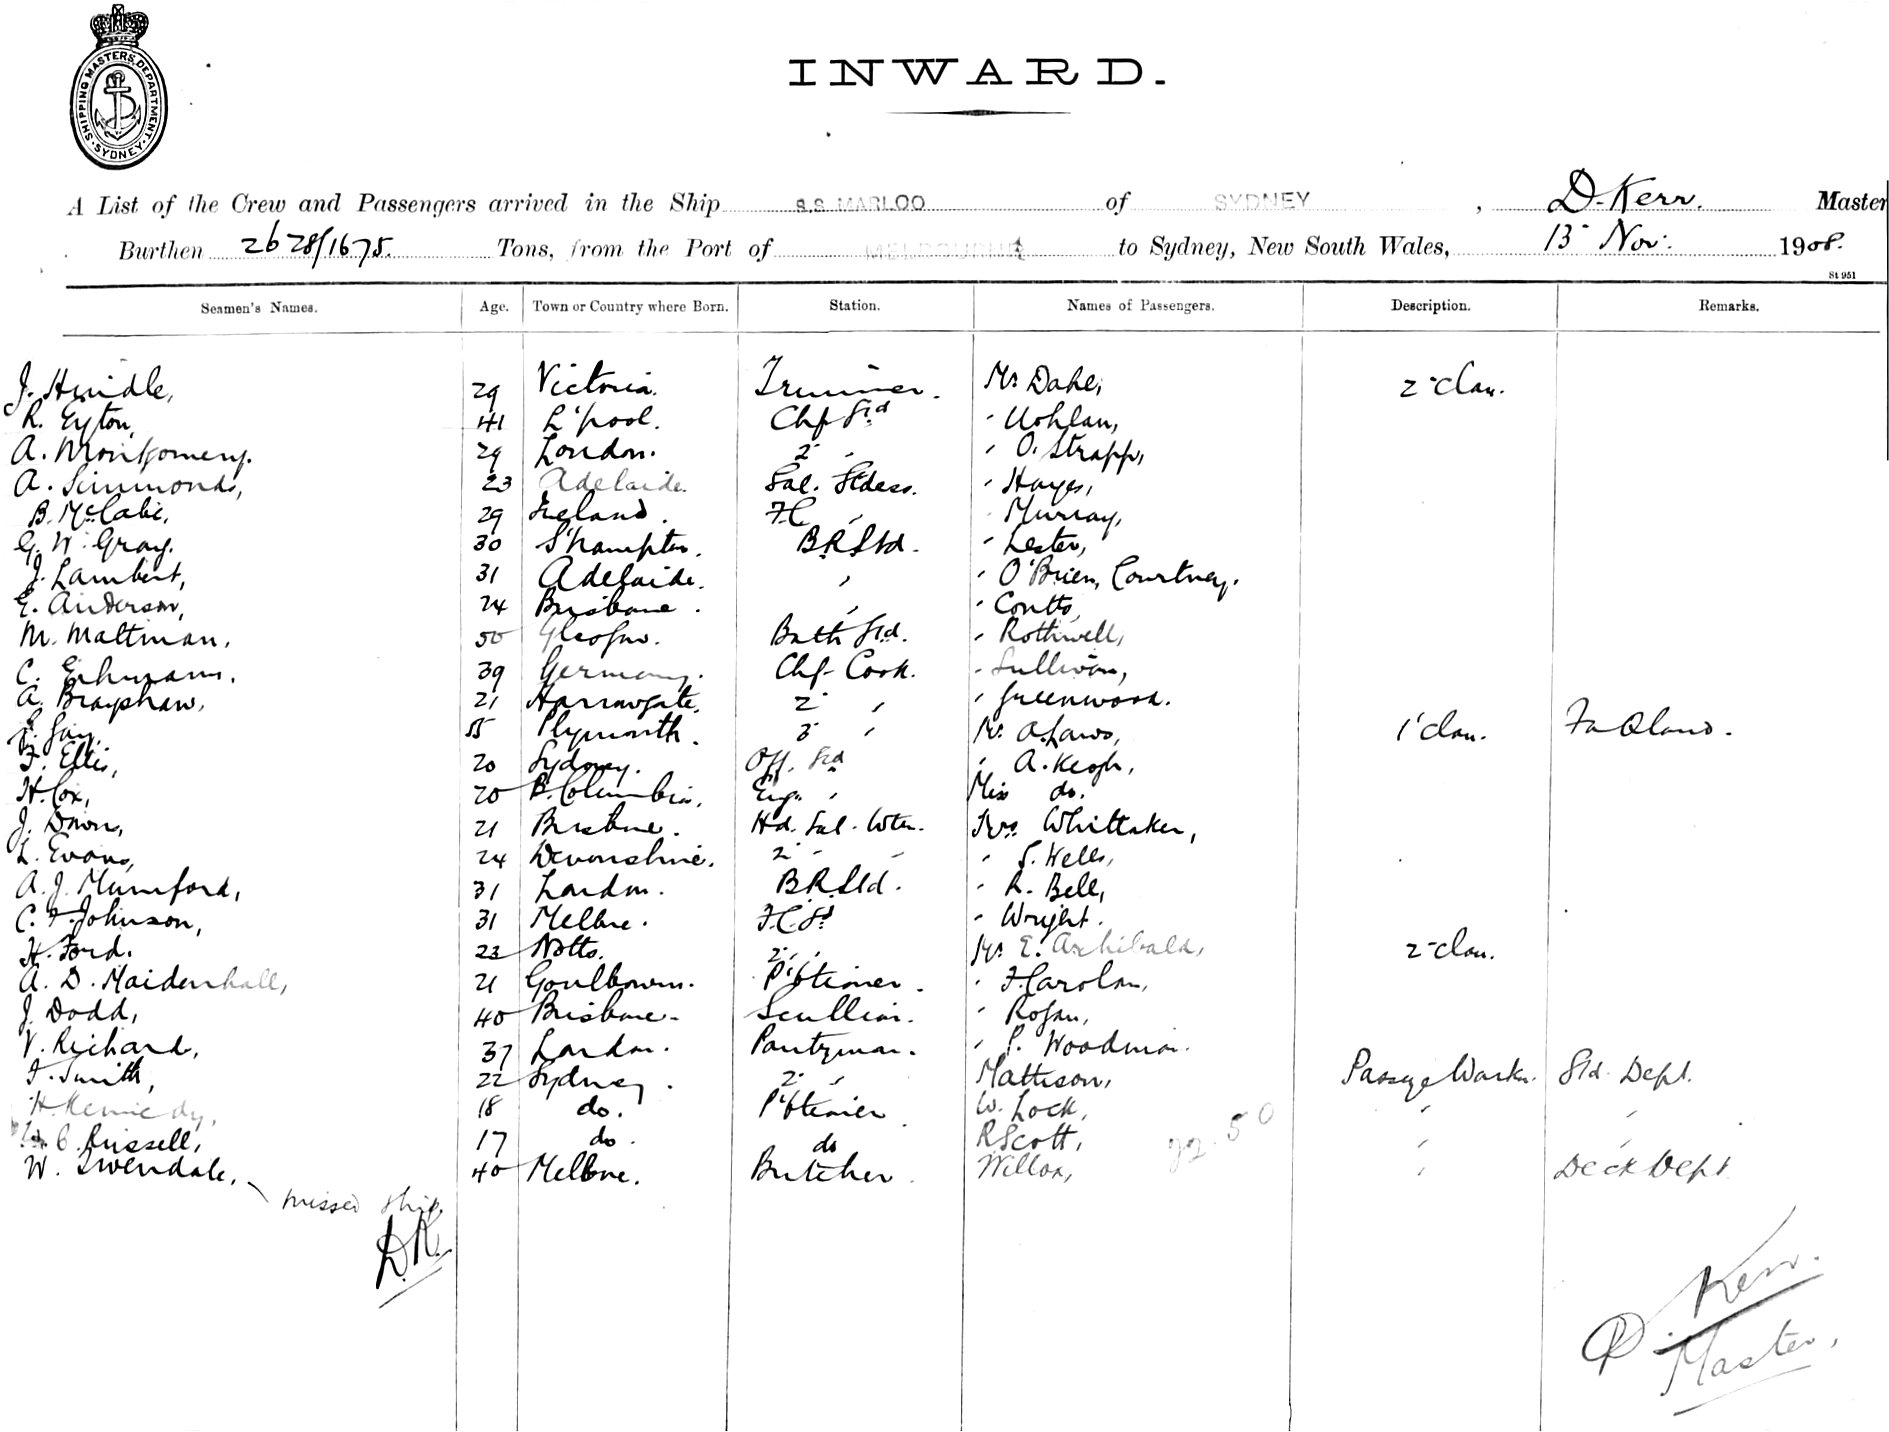 SHIPPING MASTERS DEPARTMENT. SYDNEY.
INWARD.
A List of the Crew and Passengers arrived in the Ship S.S MARLOO of SYDNEY , D. Kerr. Master
Burthen 2628/1675. Tons, from the Port of MELBOURNE to Sydney, New South Wales, 13 Nov. 1908.
St 951
Seamen's Names. Age. Town or Country where Born. Station. Names of Passengers. Description. Remarks.
J. Hindle, 29 Victoria. Trimmer. Mr Dahl, 2 Class.
R. Eyton, 41 L'pool. Chf Std
A. Montgomery. 29 London. 2 " " O. Strapp,
A. Simmonds, 23 Adelaide. Sal. Stdess. " Hayes,
B. McCabe, 29 Ireland. F.C. " " Murray,
G. W. Gray. 30 S'hampton. B.R. Std. " Lester,
J. Lambert, 31 Adelaide. " " O'Brien, Courtney.
E. Anderson, 24 Brisbane. " " Coutts,
M. Maltman, 50 Glasgow. Bath Std. " Rothwell,
C. 39 Germany. Chf. Cook. " Sullivan,
A. Brayshaw, 21 Harrowgate. 2 " " Greenwood.
Gay, 55 Plymouth. 3 " Mr. A. Laws, 1 Class.
F. Ellis, 20 Sydney. Off. Std " A. Keogh,
H. Cox, 20 B. Columbia. Eng. " Miss do.
J. Dixon, 21 Brisbane. Hd. Sal. Wter. Mrs Whittaker,
L. Evans, 24 Devonshire. 2 " " " S. Wells,
A. J. Mumford, 31 London. B.R. Std. " R. Bell,
C. F. Johnson, 31 Melbne. F.C. Std " Wright.
H. Ford. 23 Notts. 2 " " Mr. E. Archibald, 2 Class.
A. D. Maidenhall, 21 Goulbourn. P'ftner. " F. Carolan,
J. Dodd, 40 Brisbane. Scullion. " Rogan,
V. Richard, 37 London. Pantryman. " Woodman.
F. Smith, 22 Sydney. 2 " Mattison, Passage Worker. Std. Dept.
H Kennedy, 18 do. W. Lock, " "
C. Russell, 17 do. do R Scott, " "
W. Swendale, 40 Melbne. Butcher. Willox, " Deck Dept
missed ship.
D.K.
D. Kerr.
Master,